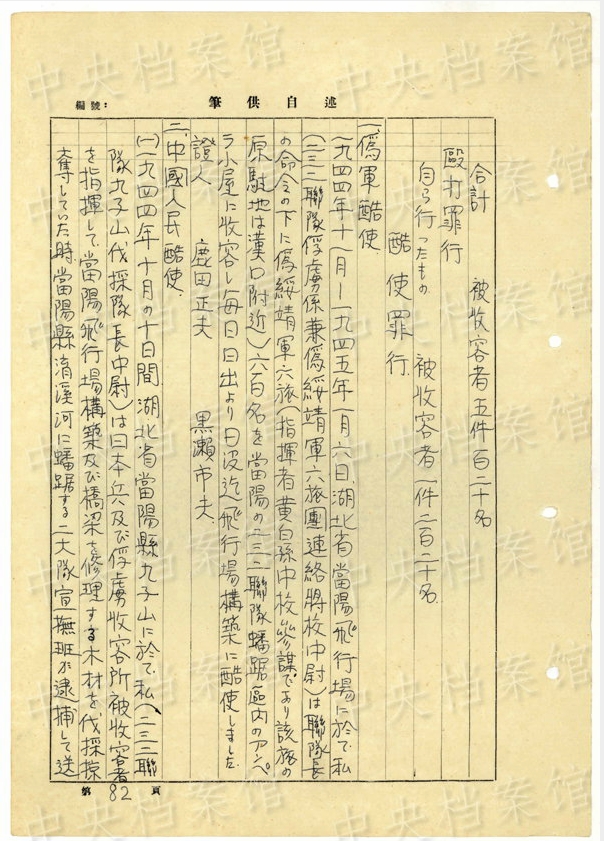 編號：
述自供筆
合計　被收容者五件百二十名
毆打罪行
自ら行ったもの　被收容者一件一百二十名.
酷使罪行.
一、偽軍酷使
一九四四年十一月ー一九四五年一月六日.湖北省當陽飛行場に於て.私
(二三二聯隊俘虜係兼偽綏靖軍六旅團連絡將校中尉)は聯隊長
の命令の下に偽綏靖軍六旅(指揮者黄白孫中校參謀であり該旅の
原駐地は漢口附近)六百名を當陽の二三二聯隊蟠踞區内のアンペ
ラ小屋に收容し毎日日出より日没迄飛行場構築に酷使しました.
證人　鹿田正夫　黒瀬市夫.
二、中國人民酷使.
(一)一九四四年十月の十日間湖北省當陽縣九子山に於て.私(二三二聯
隊九子山伐採隊長中尉)は日本兵及び俘虜收容所被收容者
を指揮して.當陽飛行場構築及び橋梁を修理する木材を伐採掠
奪していた時.當陽縣淯溪河に蟠踞する二大隊宣撫班が逮捕して送
第82頁
中央档案馆